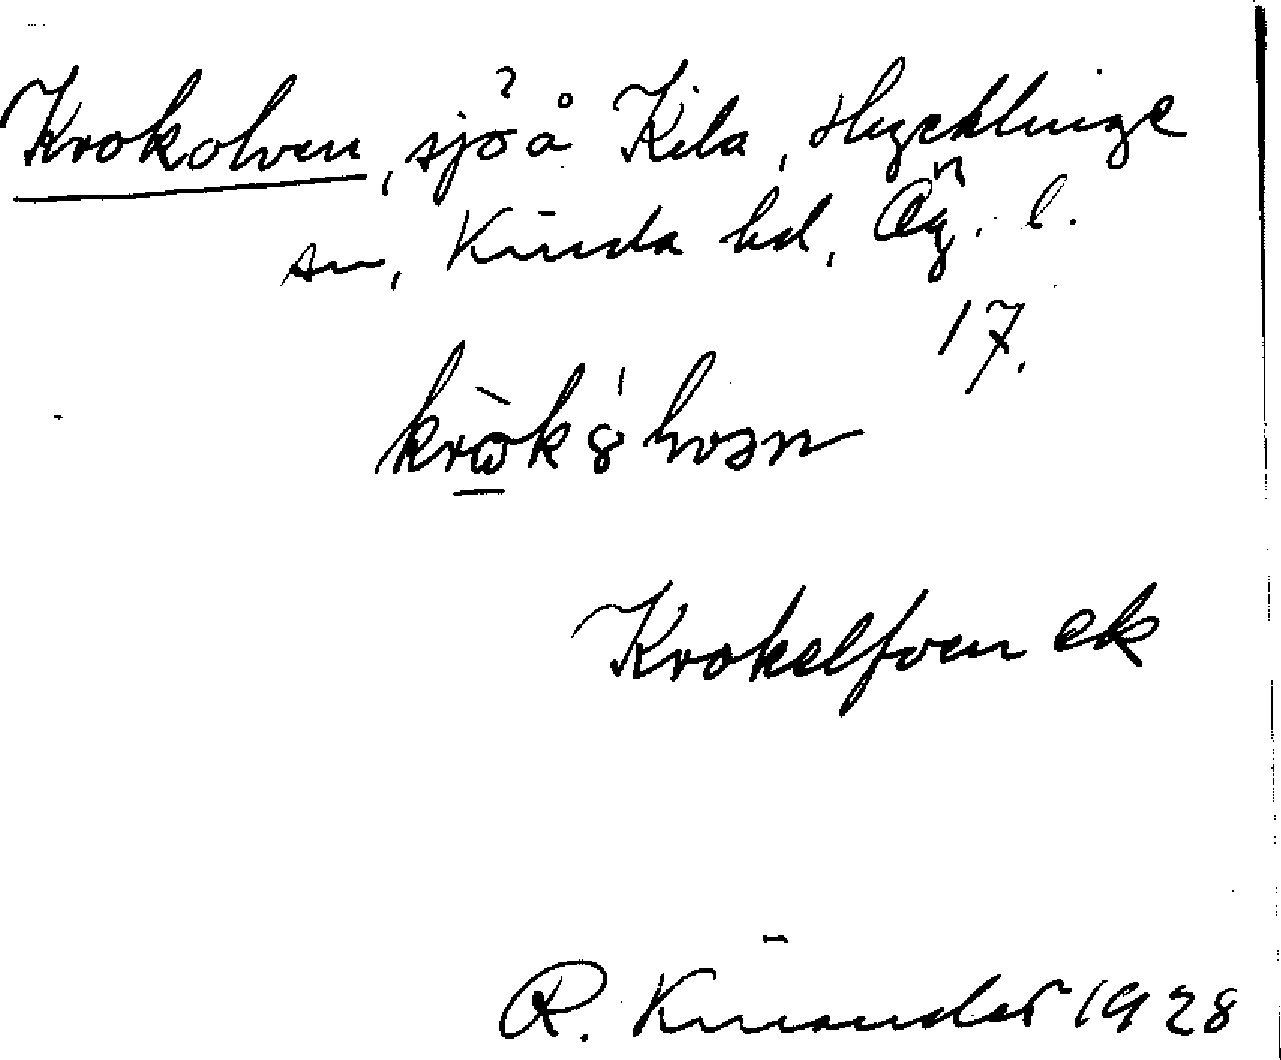 Krokolven, sjö å Kila, Hycklinge
sn, Kinda hd, Ög. l.
17.
Krokelfven ek
R. Kinander 1928